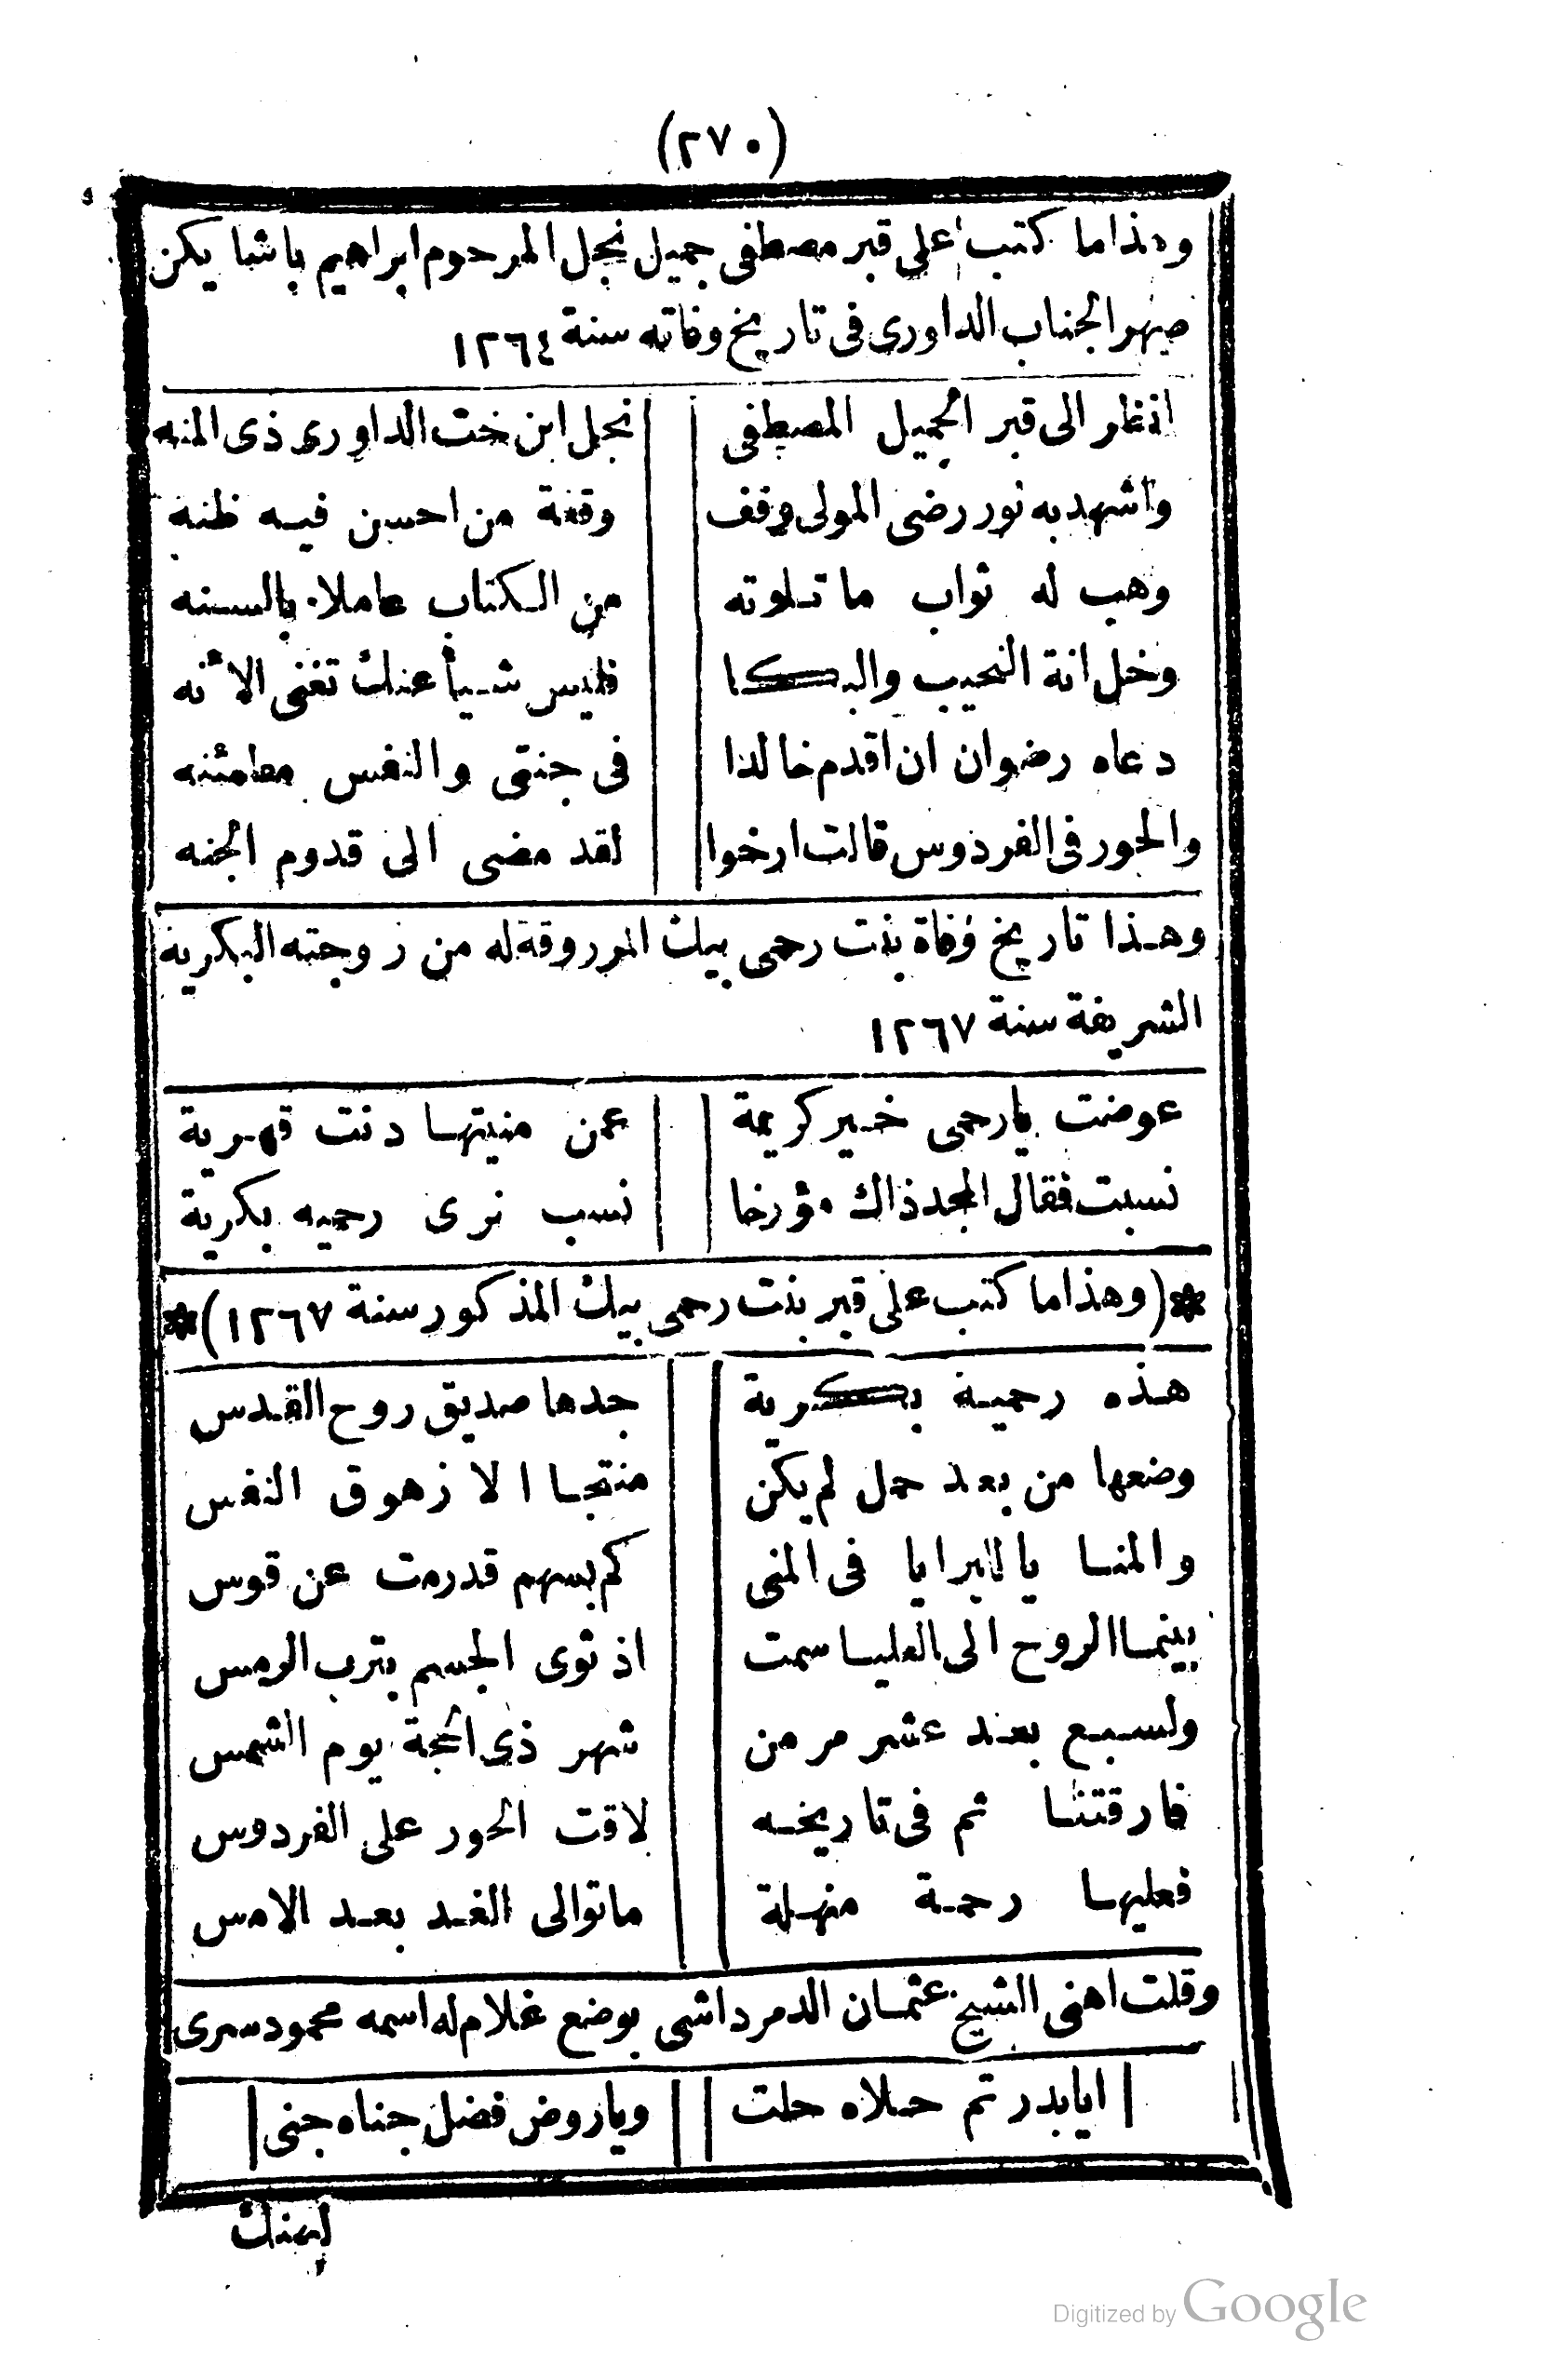 (٢٧٠)
وهذاما كتب على قبر مصطفى جميل نجل المرحوم ابراهيم باشا يكن
صهر الجناب الداورى فى تاريخ وفاته سنة ١٢٦٤
انظر الى قبر الجميل المصطفى | نجل ابن خت الداورى ذى المنه
واشهد به نور رضى المولى وقف | وقفة من احسن فيه ظنه
وهب له ثواب ما تلوته | من الكتاب عاملا بالسنه
وخل انة النحيب والبكا | فليس شيأ عنك تغنى الأنه
دعاه رضوان ان اقدم خالدا | فى جنتى والنفس مطمئنه
والحور فى الفردوس قالت ارخوا | لقد مضى الى قدوم الجنه
وهذا تاريخ وفاة بنت رحمى بيك المرزوقة له من زوجته البكرية
الشريفة سنة ١٢٦٧
عوضت يارحمى خير كريمة | عمن منيتها دنت قهرية
نسبت فقال المجد ذاك مؤرخا | نسب نرى رحميه بكرية
*(وهذا ما كتب على قبر بنت رحمى بيك المذكور سنة ١٢٦٧)*
هذه رحمية بكرية | جدها صديق روح القدس
وضعها من بعد حمل لم يكن | منتجا الا زهوق النفس
والمنا يا للبرايا فى المنى | كم بسهم قدرمت عن قوس
بينما الروح الى العليا سمت | اذ ثوى الجسم بترب الرمس
ولسبع بعد عشر مر من | شهر ذى الحجة يوم الشمس
فارقتنا ثم فى تاريخه | لاقت الحور على الفردوس
فعليها رحمة منهلة | ماتوالى الغد بعد الامس
وقلت اهنى الشيخ عثمان الدمرداشى بوضع غلام له اسمه محمود سرى
ايابدر تم حلاه حلت | وياروض فضل جناه جنى
ليهنك
Digitized by Google